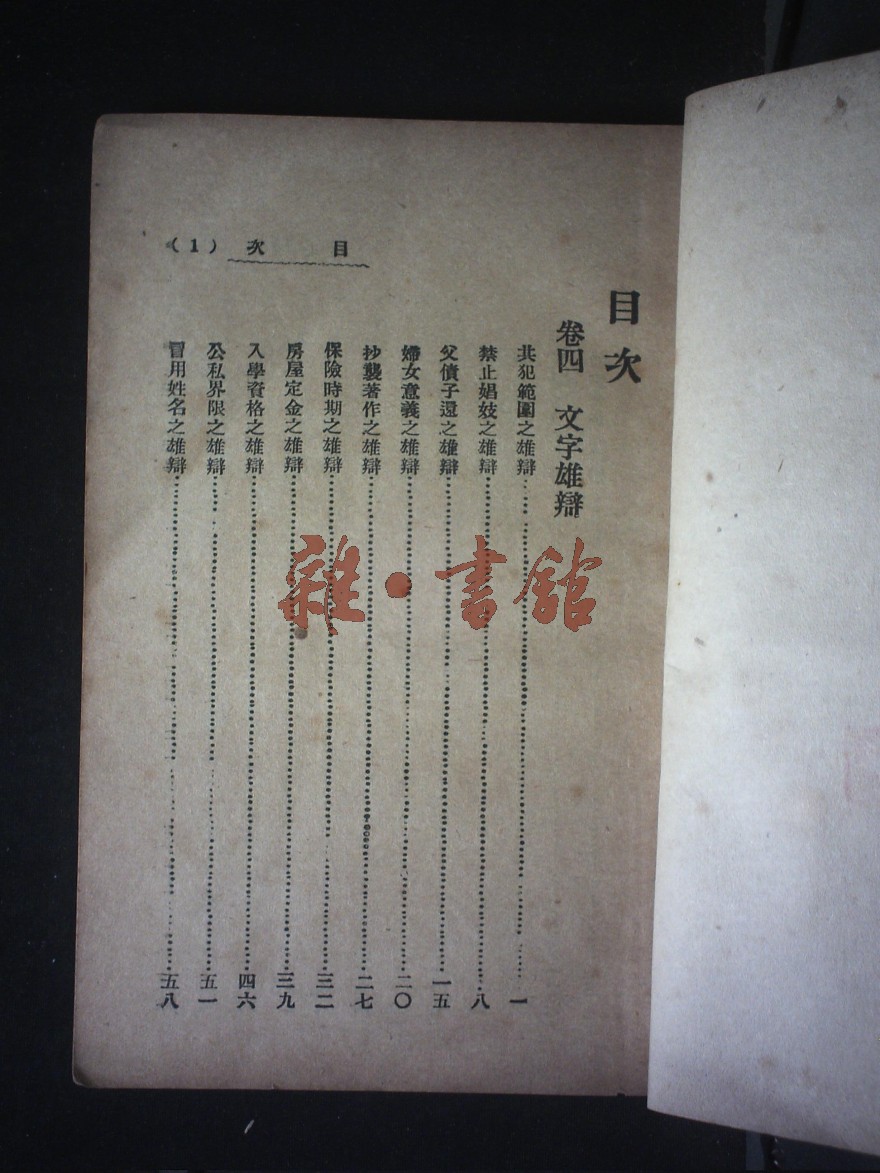 目次
卷四　文字雄辯
共犯範圍之雄辯……一
禁止娼妓之雄辯……八
父債子還之雄辯……一五
婦女意義之雄辯……二〇
抄襲著作之雄辯……二七
保險時期之雄辯……三二
房屋定金之雄辯……三九
入學資格之雄辯……四六
公私界限之雄辯……五一
冒用姓名之雄辯……五八
（1）次目
雜·書館